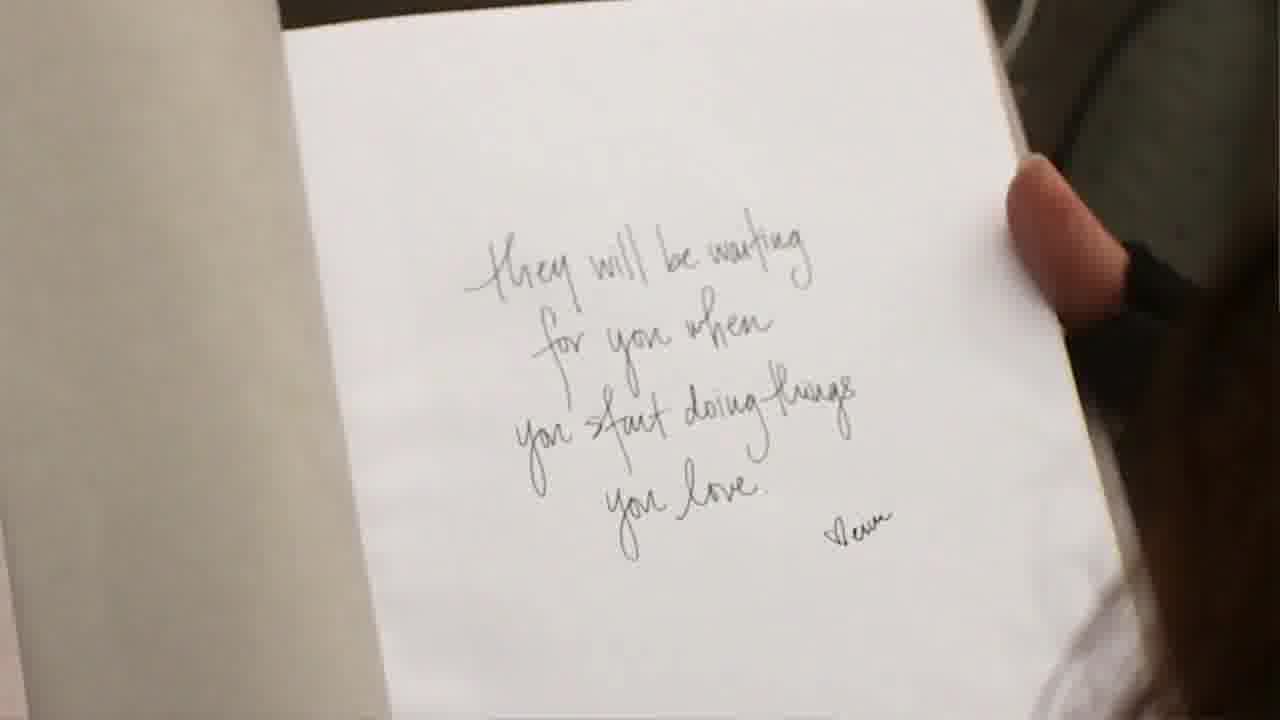 they will be waiting
for you when
you start doing things
you love.